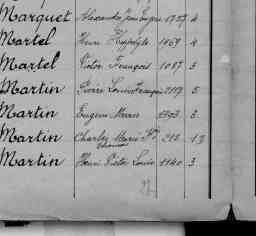 Marquet Alexandre Jean Eugène 1757 4
Martel Henri Hippolyte 1469 4
Martel Victor François 1087 3
Martin Pierre Louis François 2119 5
Martin Eugène 1393 3
Martin Charles Marie 212 13
Martin Henri Victor Louis 1140 3